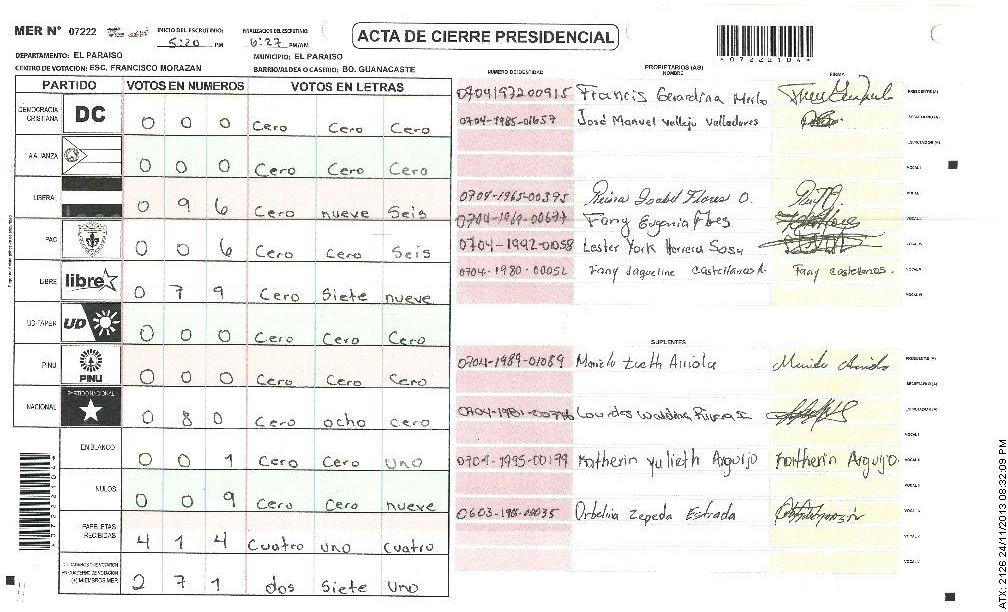 MER Nº 07222 INICIO DEL ESCRUTINIO: 5:20 PM FINALIZACION DEL ESCRUTINIO: 6:27 PM/AM
ACTA DE CIERRE PRESIDENCIAL
*07222104*
DEPARTAMENTO: EL PARAISO MUNICIPIO: EL PARAISO
CENTRO DE VOTACION: ESC. FRANCISCO MORAZAN BARRIO/ALDEA O CASERIO: BO. GUANACASTE
PARTIDO VOTOS EN NUMEROS VOTOS EN LETRAS
DEMOCRACIA CRISTIANA DC 0 0 0 Cero Cero Cero
LA ALIANZA 0 0 0 Cero Cero Cero
LIBERAL 0 9 6 Cero nueve Seis
PAC 0 0 6 Cero Cero Seis
LIBRE libre 0 7 9 Cero Siete nueve
UD-FAPER UD 0 0 0 Cero Cero Cero
PINU PINU 0 0 0 Cero Cero Cero
NACIONAL PARTIDO NACIONAL 0 8 0 Cero ocho cero
EN BLANCO 0 0 1 Cero Cero uno
NULOS 0 0 9 Cero Cero nueve
PAPELETAS RECIBIDAS 4 1 4 Cuatro uno Cuatro
(+) MIEMBROS MER 2 7 1 dos Siete uno
*07222104*
NUMERO DE IDENTIDAD PROPIETARIOS (AS) NOMBRE FIRMA
0704197200915 Francis Gerardina Merlo PRESIDENTE (A)
0704-1985-01657 José Manuel Vallejo Valladares SECRETARIO (A)
ESCRUTADOR (A)
VOCAL I
0704-1965-00395 Reina Isabel Flores O.
0704-1969-00677 Fany Eugenia Flores
0704-1992-01058 Lester York Herrera Sosa
0704-1980-00052 Fany Jaqueline Castellanos A. Fany castellanos.
SUPLENTES
0704-1989-01089 PRESIDENTE (A)
SECRETARIO (A)
Lourdes ESCRUTADOR (A)
0704-1995-00179 Katherin Yulieth Arguijo Katherin Arguijo.
Orbelina Zepeda Estrada
ATX: 2126 24/11/2013 08:32:09 PM